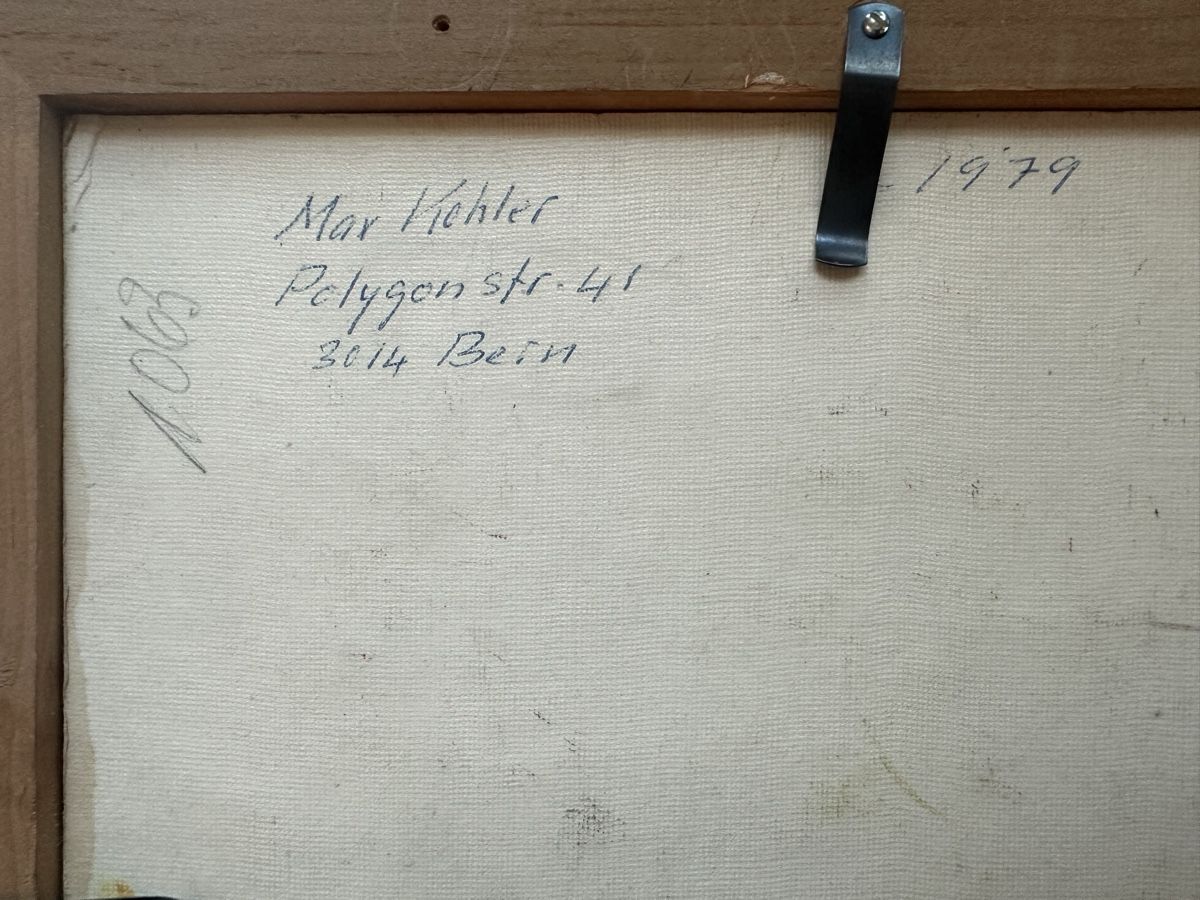 - 1979
Max Kohler
Polygonstr. 41
3014 Bern
1063